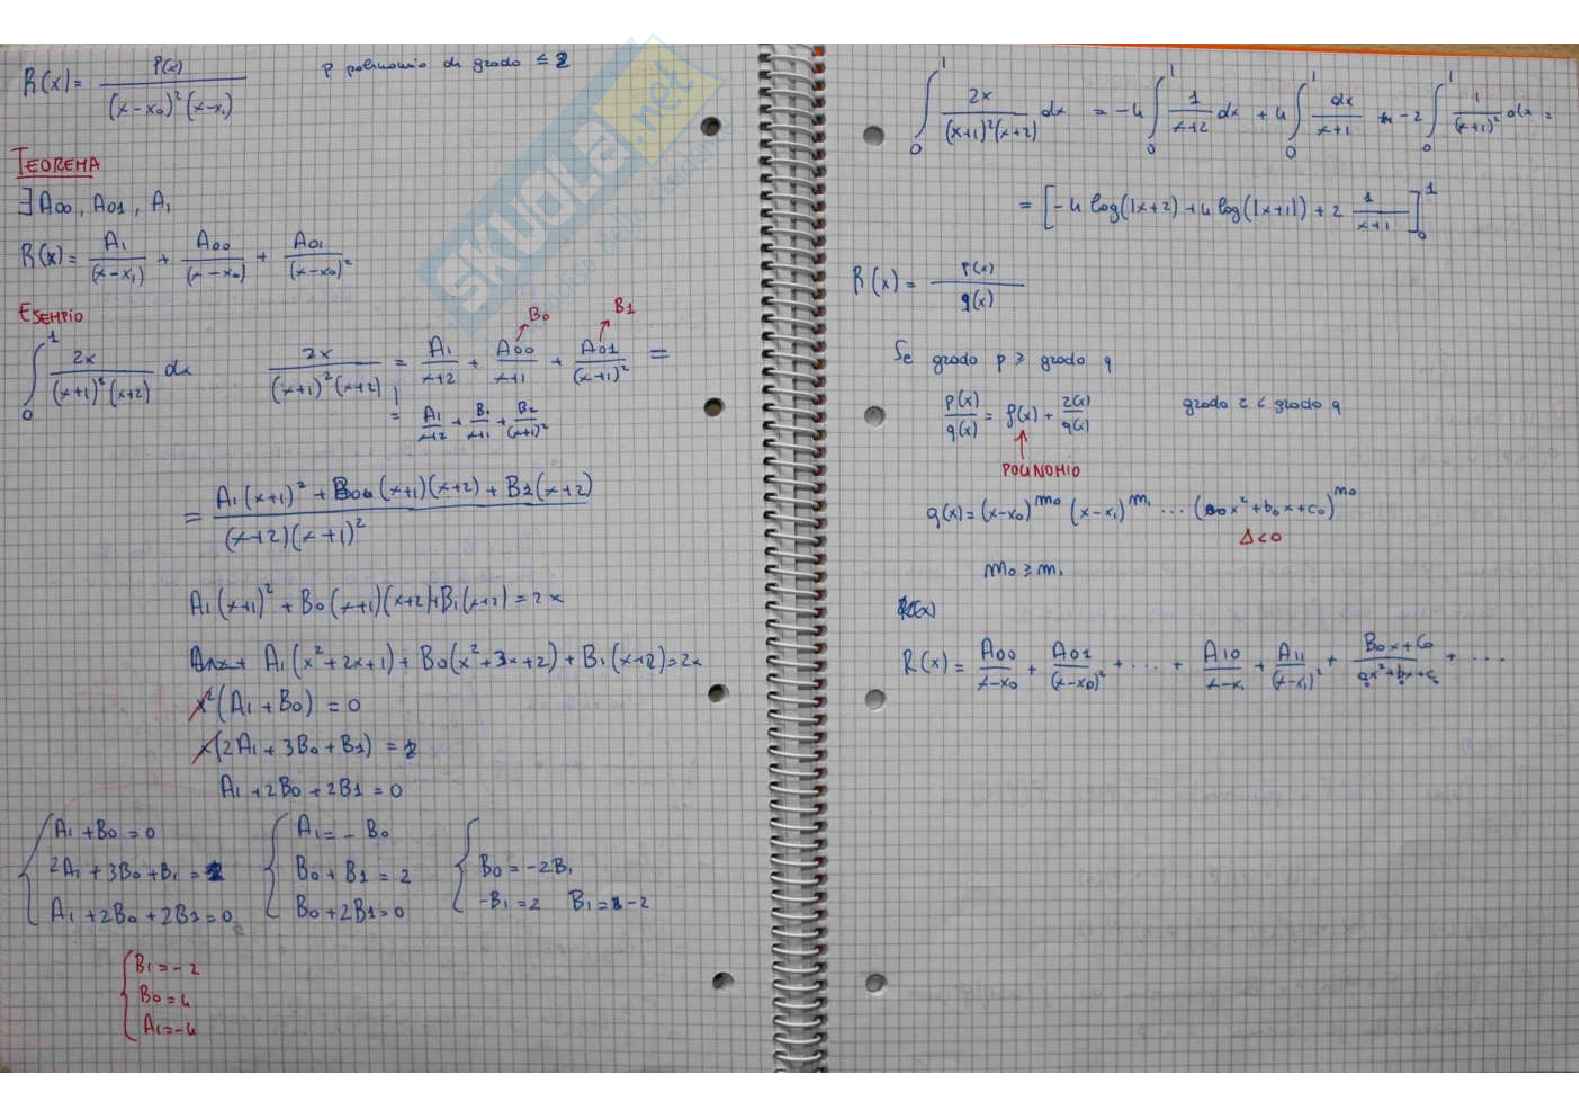 R(x) = P(x) / (x-x₀)²(x-x₁)   p polinomio di grado ≤ 2
TEOREMA
∃ A₀₀, A₀₁, A₁
R(x) = A₁/(x-x₁) + A₀₀/(x-x₀) + A₀₁/(x-x₀)²
ESEMPIO
B₀   B1
∫₀¹ 2x/(x+1)²(x+2) dx   2x/(x+1)²(x+2) = A₁/x+2 + A₀₀/x+1 + A₀₁/(x+1)² =
= A₁/x+2 + B₁/x+1 + B₂/(x+1)²
= A₁(x+1)² + B₀(x+1)(x+2) + B₁(x+2) / (x+2)(x+1)²
A₁(x+1)² + B₀(x+1)(x+2)+B₁(x+2) = 2x
A₁(x²+2x+1) + B₀(x²+3x+2) + B₁(x+2) = 2x
x²(A₁+B₀) = 0
x(2A₁+3B₀+B1) = 2
A₁+2B₀+2B1 = 0
{ A₁+B₀ = 0   { A₁ = -B₀   {
2A₁+3B₀+B₁ = 2   B₀+B1 = 2   B₀ = -2B₁
A₁+2B₀+2B1 = 0   B₀+2B1 = 0   -B₁ = 2   B₁ = -2
{ B₁ = -2
B₀ = 4
A₁ = -4
∫₀¹ 2x/(x+1)²(x+2) dx = -4 ∫₀¹ 1/x+2 dx + 4 ∫₀¹ dx/x+1 + -2 ∫₀¹ 1/(x+1)² dx =
= [-4 log(|x+2) + 4 log(|x+1|) + 2 1/x+1]₀¹
R(x) = P(x)/q(x)
Se grado p ≥ grado q
p(x)/q(x) = f(x) + r(x)/q(x)   grado r < grado q
↑
POLINOMIO
q(x) = (x-x₀)^m₀ (x-x₁)^m₁ ... (a₀x²+b₀x+c₀)^m₀
Δ<0
m₀ ≥ m₁
R(x) = A₀₀/x-x₀ + A₀₁/(x-x₀)² + ... + A₁₀/x-x₁ + A₁₁/(x-x₁)² + B₀x+C₀/ax²+bx+c + ...
SKUOLA.net